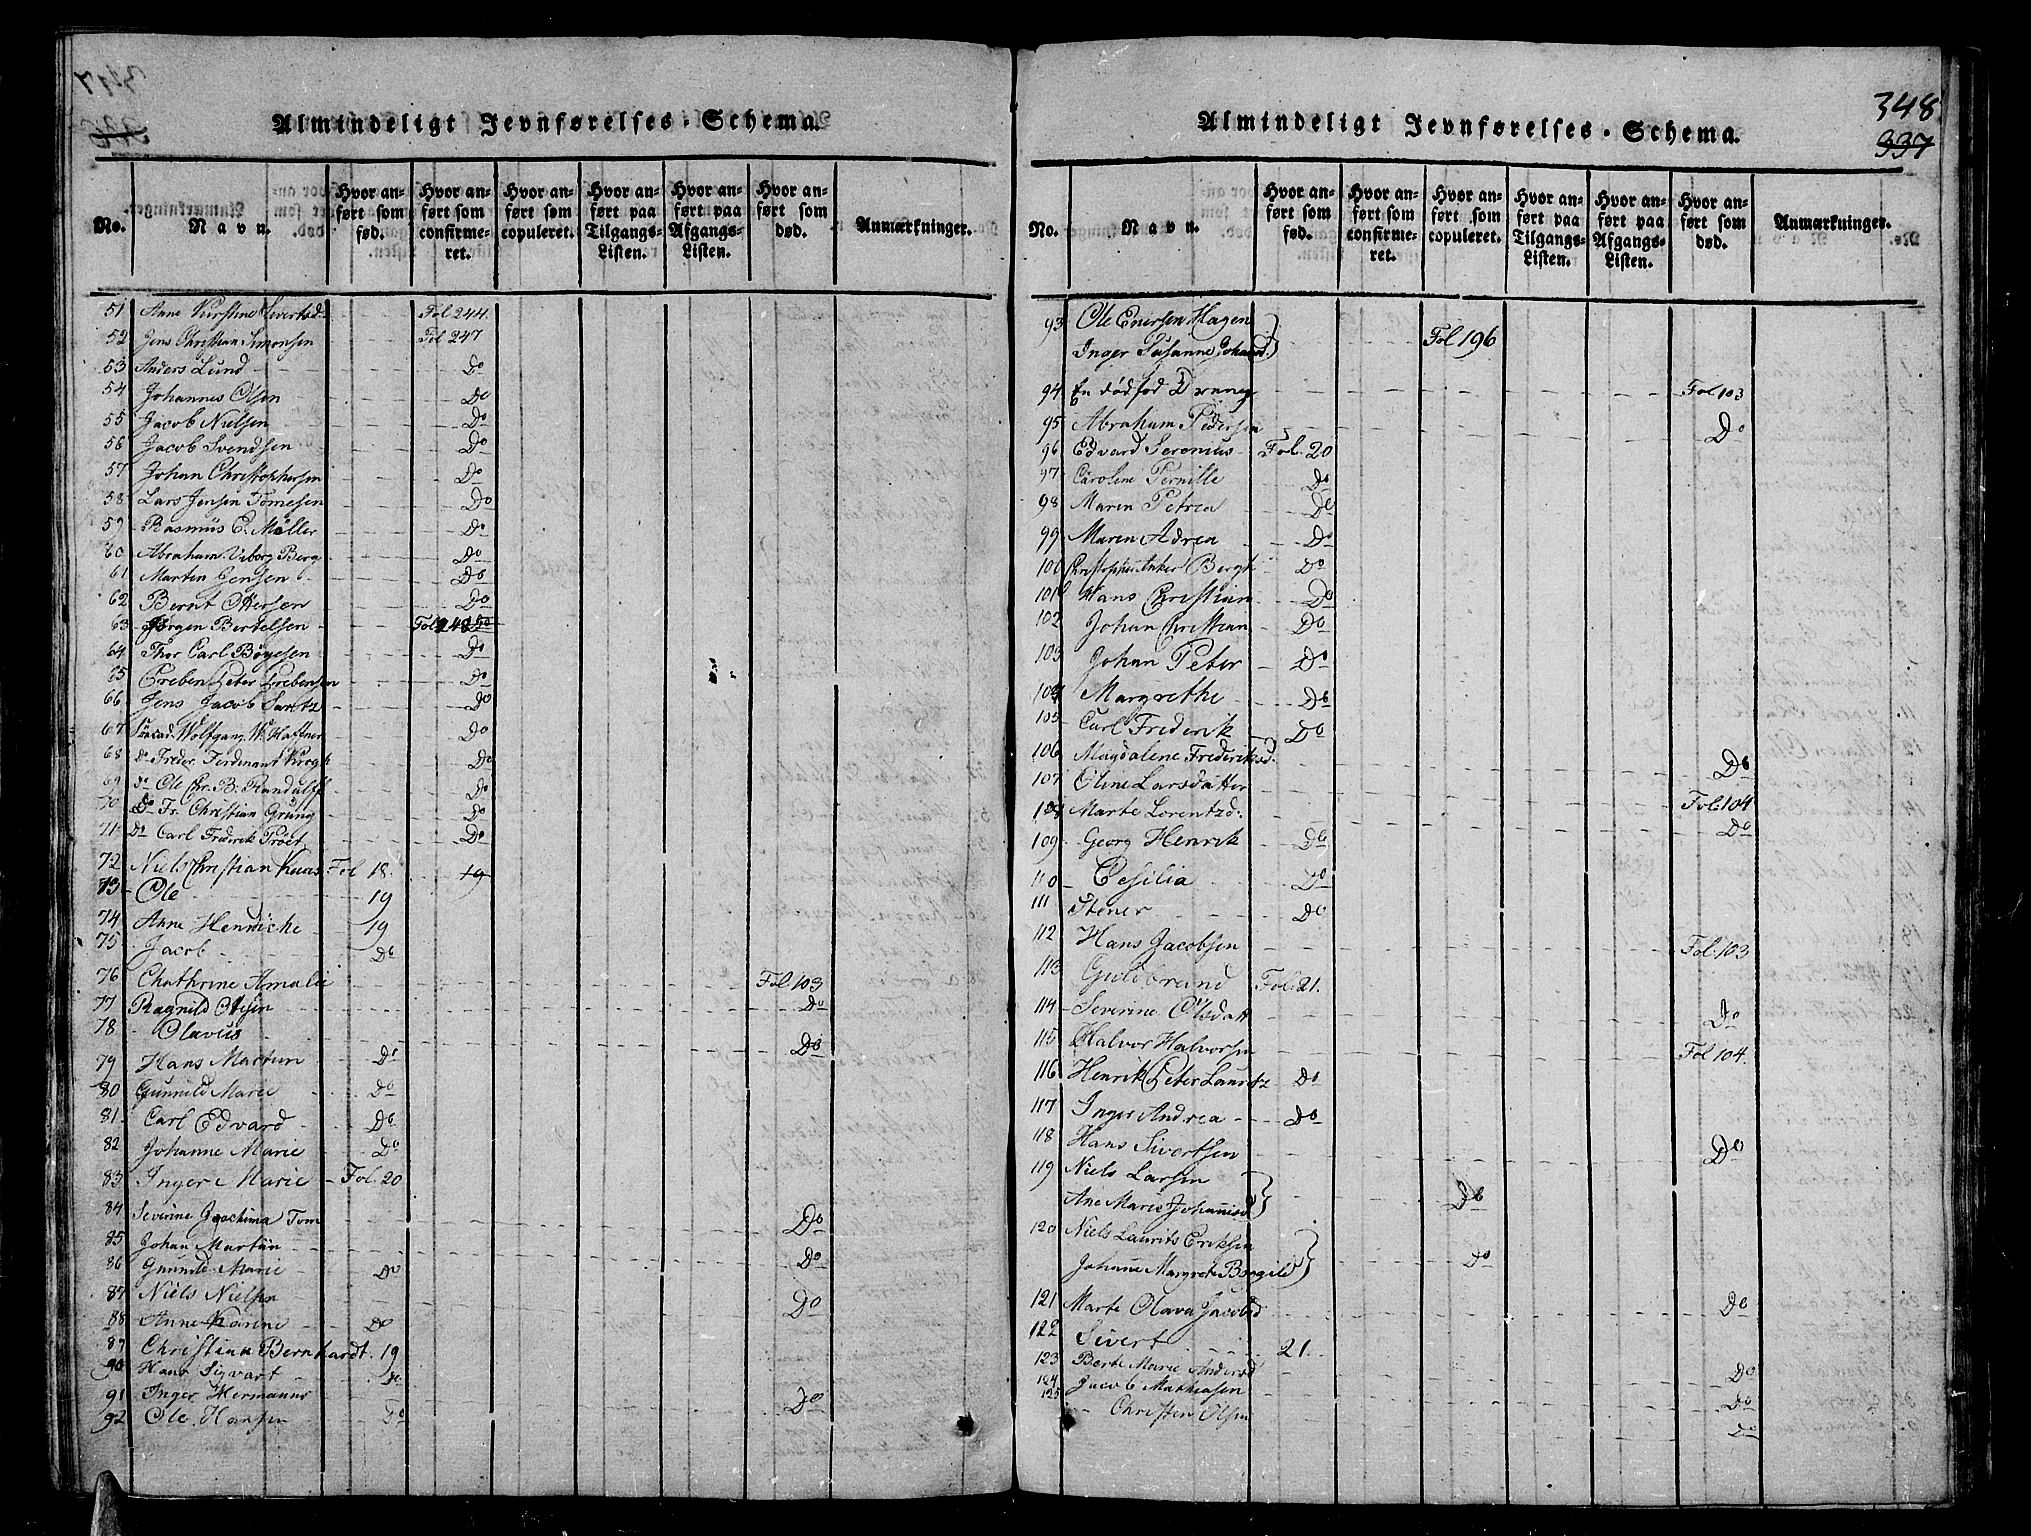 Almindeligt Jevnførelses-Schema.
No.
Navn.
Hvor anført som fød.
Hvor anført som confirmeret.
Hvor anført som copuleret.
Hvor anført paa Tilgangs-Listen.
Hvor anført paa Afgangs-Listen.
Hvor anført som død.
Anmærkninger.
51 Anne Kirstine Sivertsd. Fol 244
52 Jens Christian Simonsen Fol 247
53 Anders Lund Do
54 Johannes Olsen Do
55 Jacob Nielsen Do
56 Jacob Svendsen Do
57 Johan Christophersen Do
58 Lars Jensen Tomesen Do
59 Rasmus C. Møller Do
60 Abraham Viborg Berg Do
61 Marten Jensen Do
62 Bernt Ottersen Do
63 Jørgen Bertelsen Fol 248 Do
64 Thor Carl Bøyesen Do
65 Preben Peter Prebensen Do
66 Jens Jacob Do
67 Wolfgang W. Haffner Do
68 Do Freder. Ferdinand Krogh Do
69 Do Ole Chr. B. Randulff Do
70 Do Fr. Christian Grung Do
71 Do Carl Frederik Do
72 Niels Christian Fol 18. 19
73 Ole 19
74 Anne Henricke 19
75 Jacob Do
76 Chathrine Amalie Fol 103
77 Ragnild Olsen Do
78 Olavus Do
79 Hans Martin Do
80 Gunnild Marie Do
81 Carl Edvard Do
82 Johanne Marie Do
83 Inger Marie Fol. 20
84 Severine Jochima Tom Do
85 Johan Martin Do
86 Gunnild Marie Do
87 Niels Nielsen Do
88 Anne Karine Do
89 Christian Bernhardt 19
90 Hans Sigvart Do
91 Inger Hermanns Do
92 Ole Hansen Do
348
337
Almindeligt Jevnførelses-Schema.
No.
Navn.
Hvor anført som fød.
Hvor anført som confirmeret.
Hvor anført som copuleret.
Hvor anført paa Tilgangs-Listen.
Hvor anført paa Afgangs-Listen.
Hvor anført som død.
Anmærkninger.
93 Ole Enersen Hagen
Inger Susanne Johansd. Fol 196
94 En dødfød Dreng Fol. 103
95 Abraham Pedersen Do
96 Edvard Seronius Fol. 20
97 Caroline Pernille Do
98 Maren Petrea Do
99 Maren Adrea Do
100 Christopher Anker Bergh Do
101 Hans Christian Do
102 Johan Christian Do
103 Johan Peter Do
104 Margrethe Do
105 Carl Frederik Do
106 Magdalene Frederiksd. Do
107 Oline Larsdatter Fol. 104
108 Marte Lorentzd. Do
109 Georg Henrik Do
110 Cesilia Do
111 Stener Do
112 Hans Jacobsen Fol. 103
113 Guldbrand Fol. 21.
114 Severine Olsdatt Do
115 Halvor Halvorsen Fol 104.
116 Henrik Peter Lauritz Do
117 Inger Andrea Do
118 Hans Sivertsen Do
119 Niels Larsen
Ane Marie Johannisd Do
120 Niels Laurits Eriksen
Johanne Margrete Do
121 Marte Olava Jacobsd Do
122 Sivert 21.
123 Berte Marie Andersd Do
124 Jacob Mathiasen Do
125 Christen Olsen Do